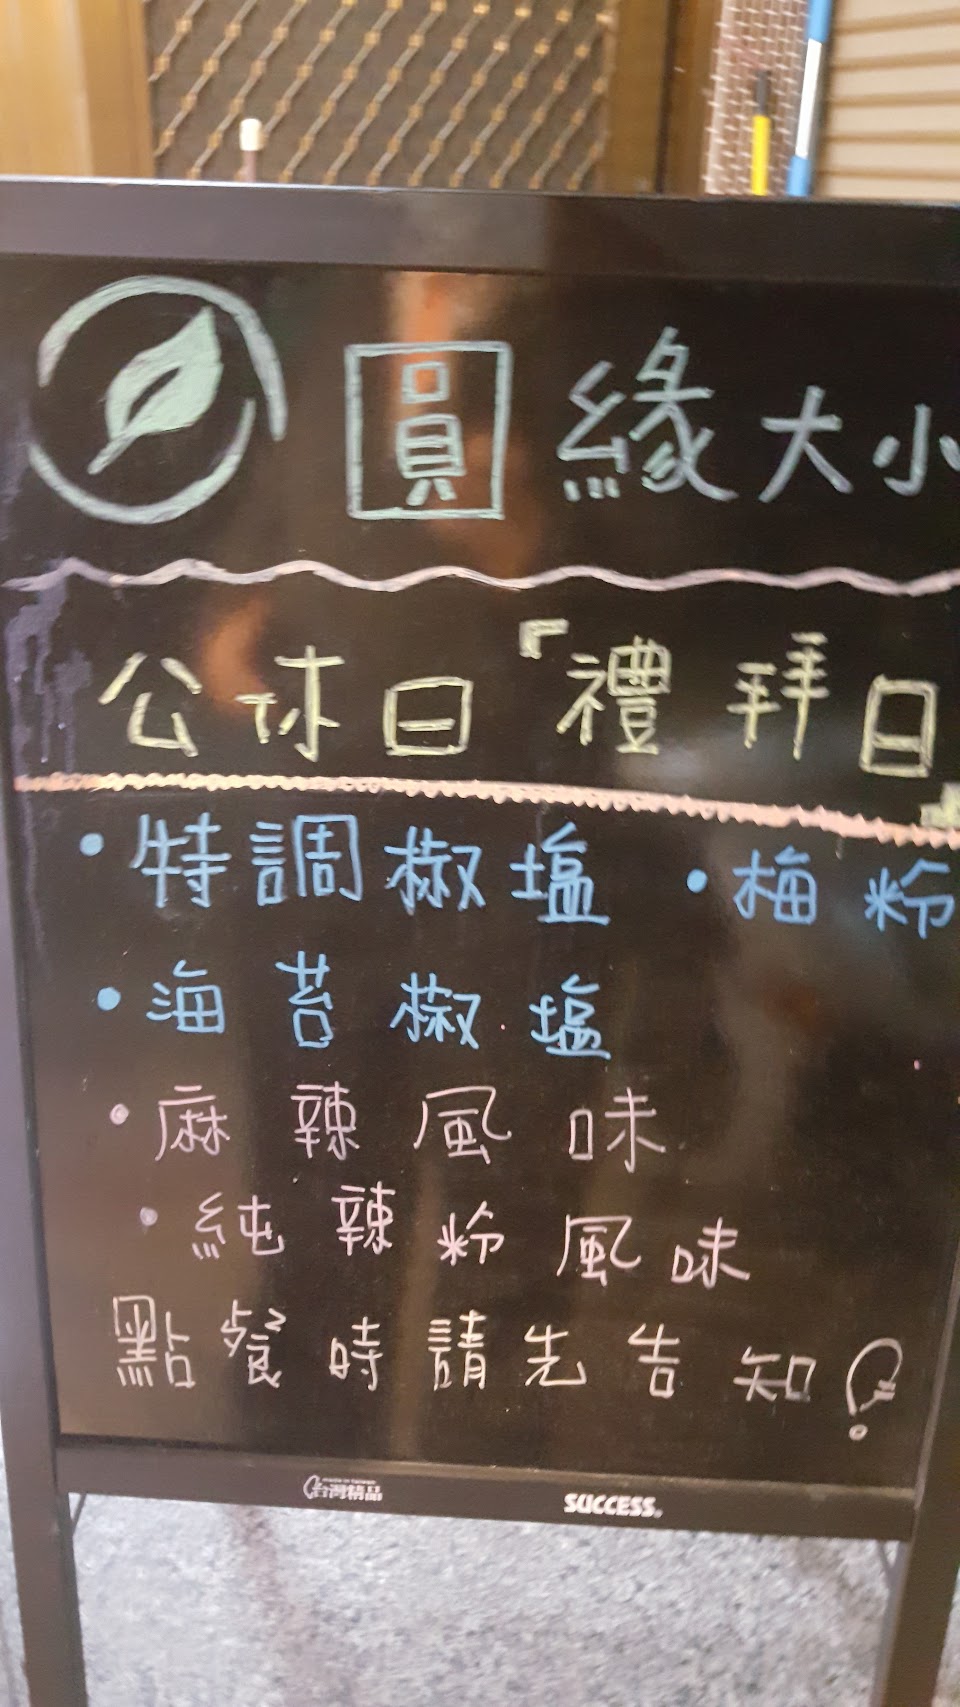 圓緣大小
公休日『禮拜日』
• 特調椒塩 • 梅粉
• 海苔椒塩
• 麻辣風味
• 純辣粉風味
點餐時請先告知
台灣精品 SUCCESS®